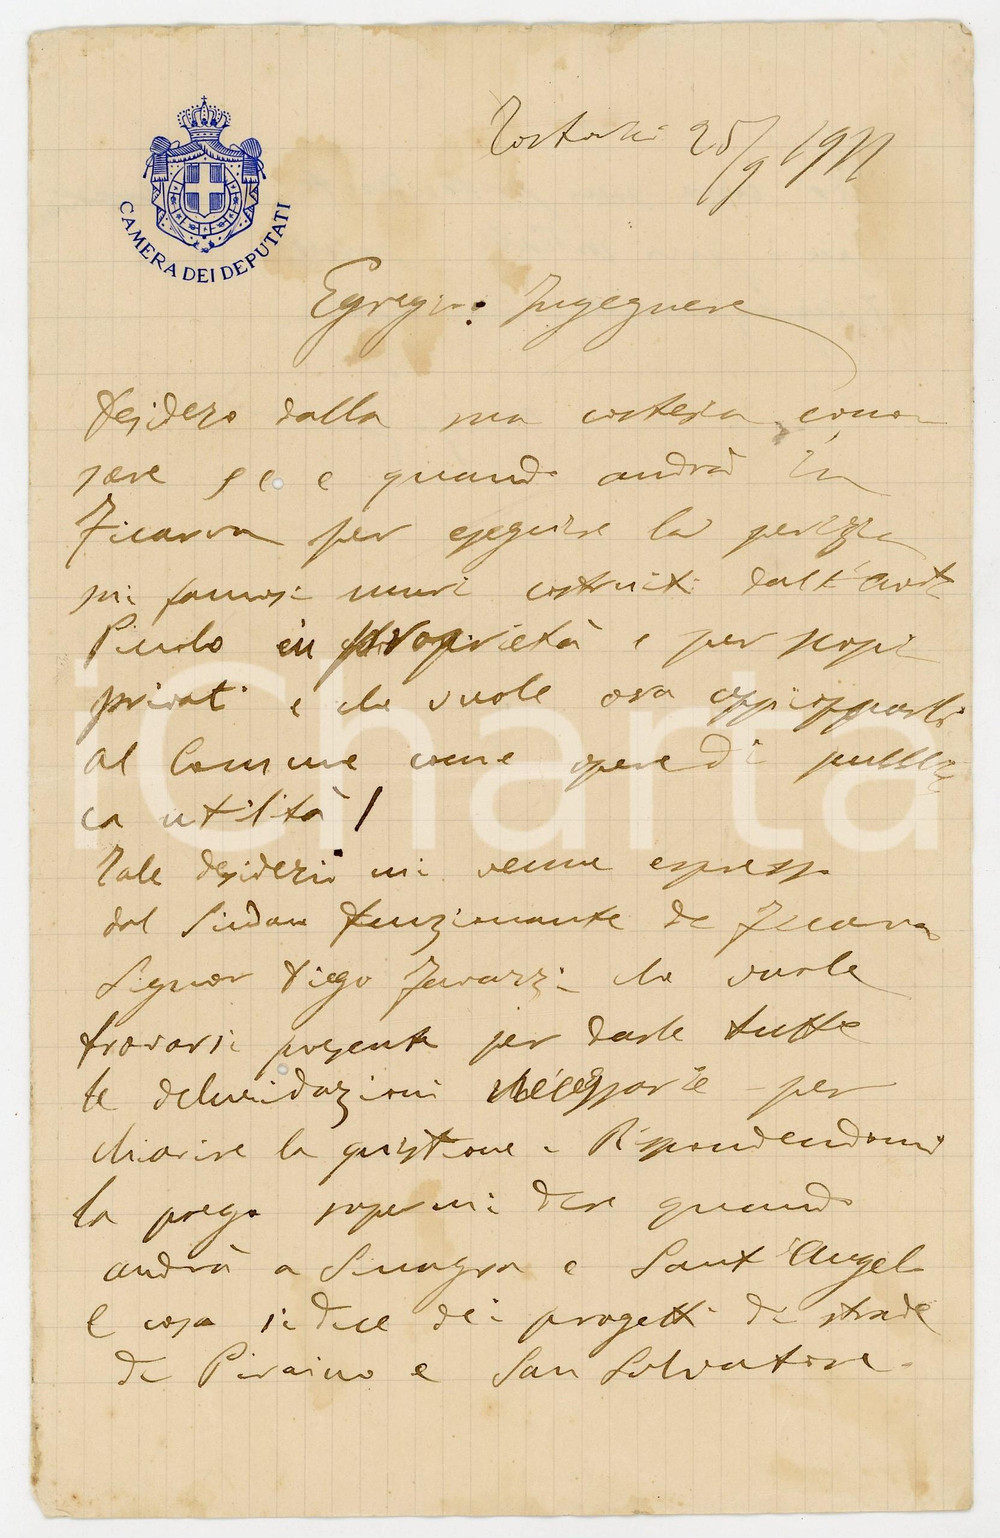 CAMERA DEI DEPUTATI
25/9 1911
Egregio Ingegnere
Desidero dalla sua cortesia cono
scere se e quando andrà in
Ficarra per eseguire la perizia
sui famosi muri costruiti dall'
Piccolo in proprietà e per scopi
privati e che vuole ora
al Comune come opere di pubbli
ca utilità!
Tale desiderio mi venne espresso
dal Sindaco funzionante di Ficarra
Signor Diego che vuole
trovarsi presente per darle tutte
le delucidazioni necessarie per
chiarire la quistione. Rispondendomi
la prego sapermi dire quando
andrà a Sinagra e Sant'Angelo
E cosa si dice dei progetti di strade
di Piraino e San Salvatore.
iCharta